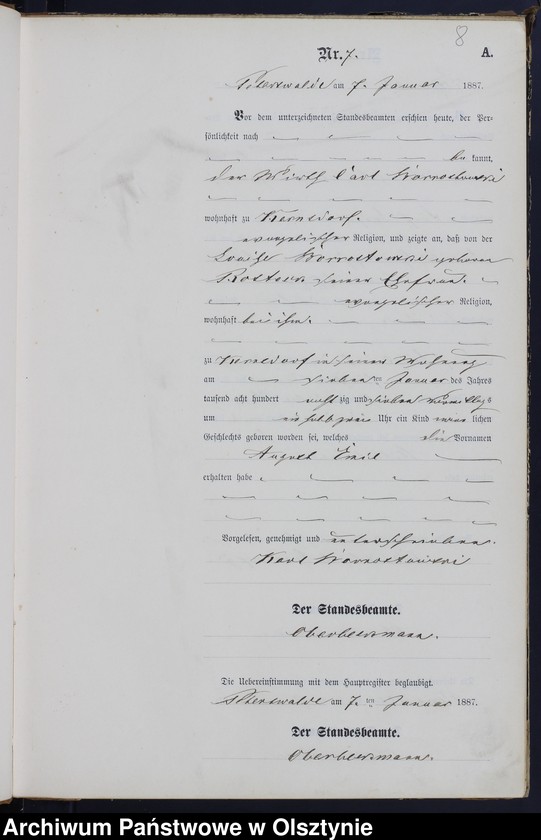 8
Nr. 7. A.
Peterswalde am 7. Januar 1887.
Vor dem unterzeichneten Standesbeamten erschien heute, der Per-
sönlichkeit nach
be kannt,
der Wirth Carl
wohnhaft zu
evangelischer Religion, und zeigte an, daß von der
Louise geborene
seiner Ehefrau
evangelischer Religion,
wohnhaft bei ihm
zu in seiner Wohnung
am sieben ten Januar des Jahres
tausend acht hundert acht zig und sieben Vormittags
um Uhr ein Kind männ lichen
Geschlechts geboren worden sei, welches die Vornamen
August Emil
erhalten habe
Vorgelesen, genehmigt und unterschrieben.
Karl
Der Standesbeamte.
Die Uebereinstimmung mit dem Hauptregister beglaubigt.
Peterswalde am 7. ten Januar 1887.
Der Standesbeamte.
Archiwum Państwowe w Olsztynie